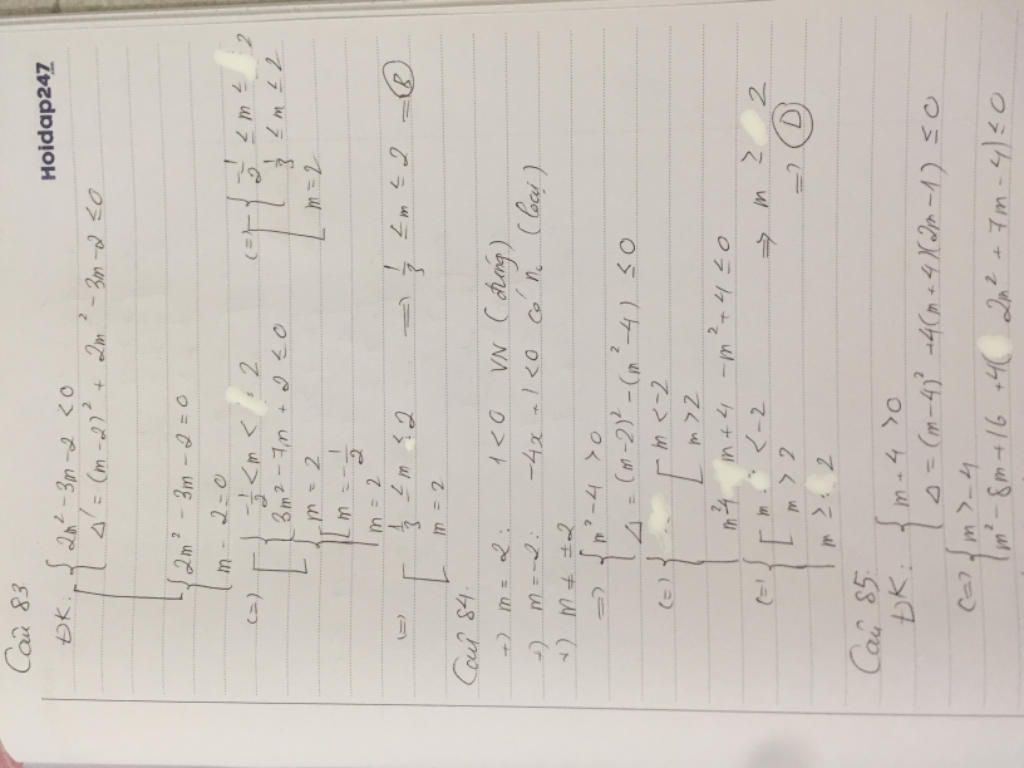 Hoidap247
Câu 83
ĐK: 2m² - 3m - 2 < 0
Δ' = (m-2)² + 2m² - 3m - 2 ≤ 0
2m² - 3m - 2 = 0
m - 2 = 0
(=) -1/2 < m < 2
3m² - 7m + 2 ≤ 0
m = 2
m = -1/2
m = 2
(=) -1/2 ≤ m ≤ 2
1/3 ≤ m ≤ 2
m = 2
(=) 1/3 ≤ m ≤ 2 => 1/3 ≤ m ≤ 2 => B
m = 2
Câu 84:
+) m = 2: 1 < 0 VN (đúng)
+) m = -2: -4x + 1 < 0 có n₀ (loại)
+) m ≠ ±2
=> m² - 4 > 0
Δ = (m-2)² - (m² - 4) ≤ 0
(=) m < -2
m > 2
m² - 4m + 4 - m² + 4 ≤ 0
(=) m < -2 => m ≥ 2
m > 2 => D
m ≥ 2
Câu 85:
ĐK: m + 4 > 0
Δ = (m-4)² + 4(m+4)(2m-1) ≤ 0
(=) m > -4
m² - 8m + 16 + 4( 2m² + 7m - 4) ≤ 0